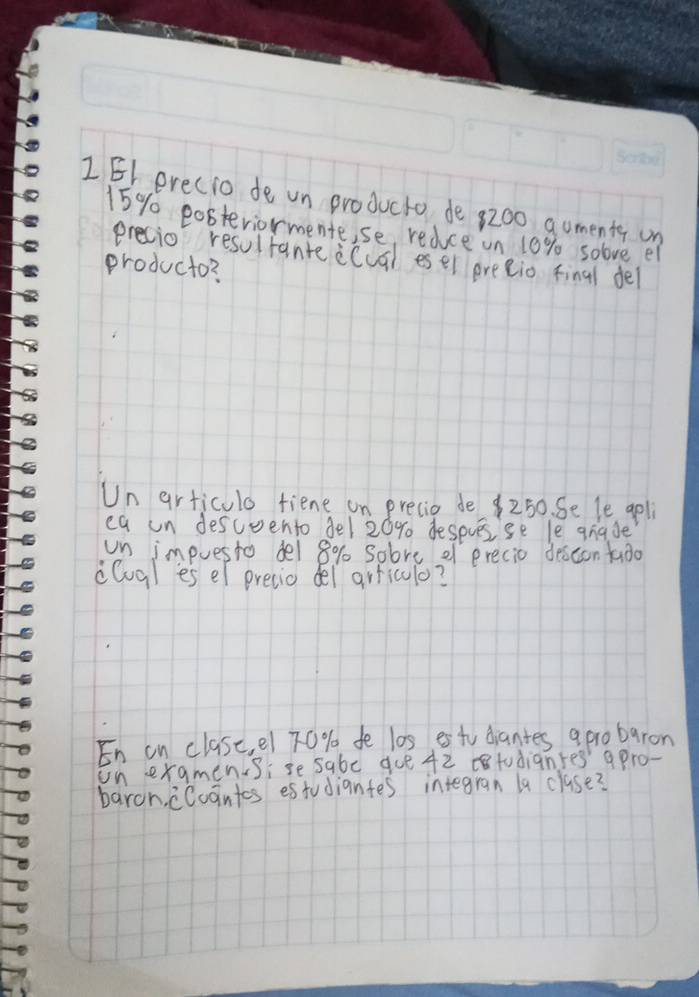 Scribe
1 El precio de un producto de $200 aumenta un
15% posteriormente, se reduce un 10% sobre el
precio resultante ¿Cuál es el precio final del
producto?
Un articulo tiene un precio de $250. Se le apli
ca un descuento del 20% después se le añade
un impuesto del 8% sobre el precio descontado
¿Cual es el precio del articulo?
En un clase, el 70% de los estudiantes aprobaron
un examen. Si se sabe que 42 estudiantes apro-
baron. ¿Cuántos estudiantes integran la clase?